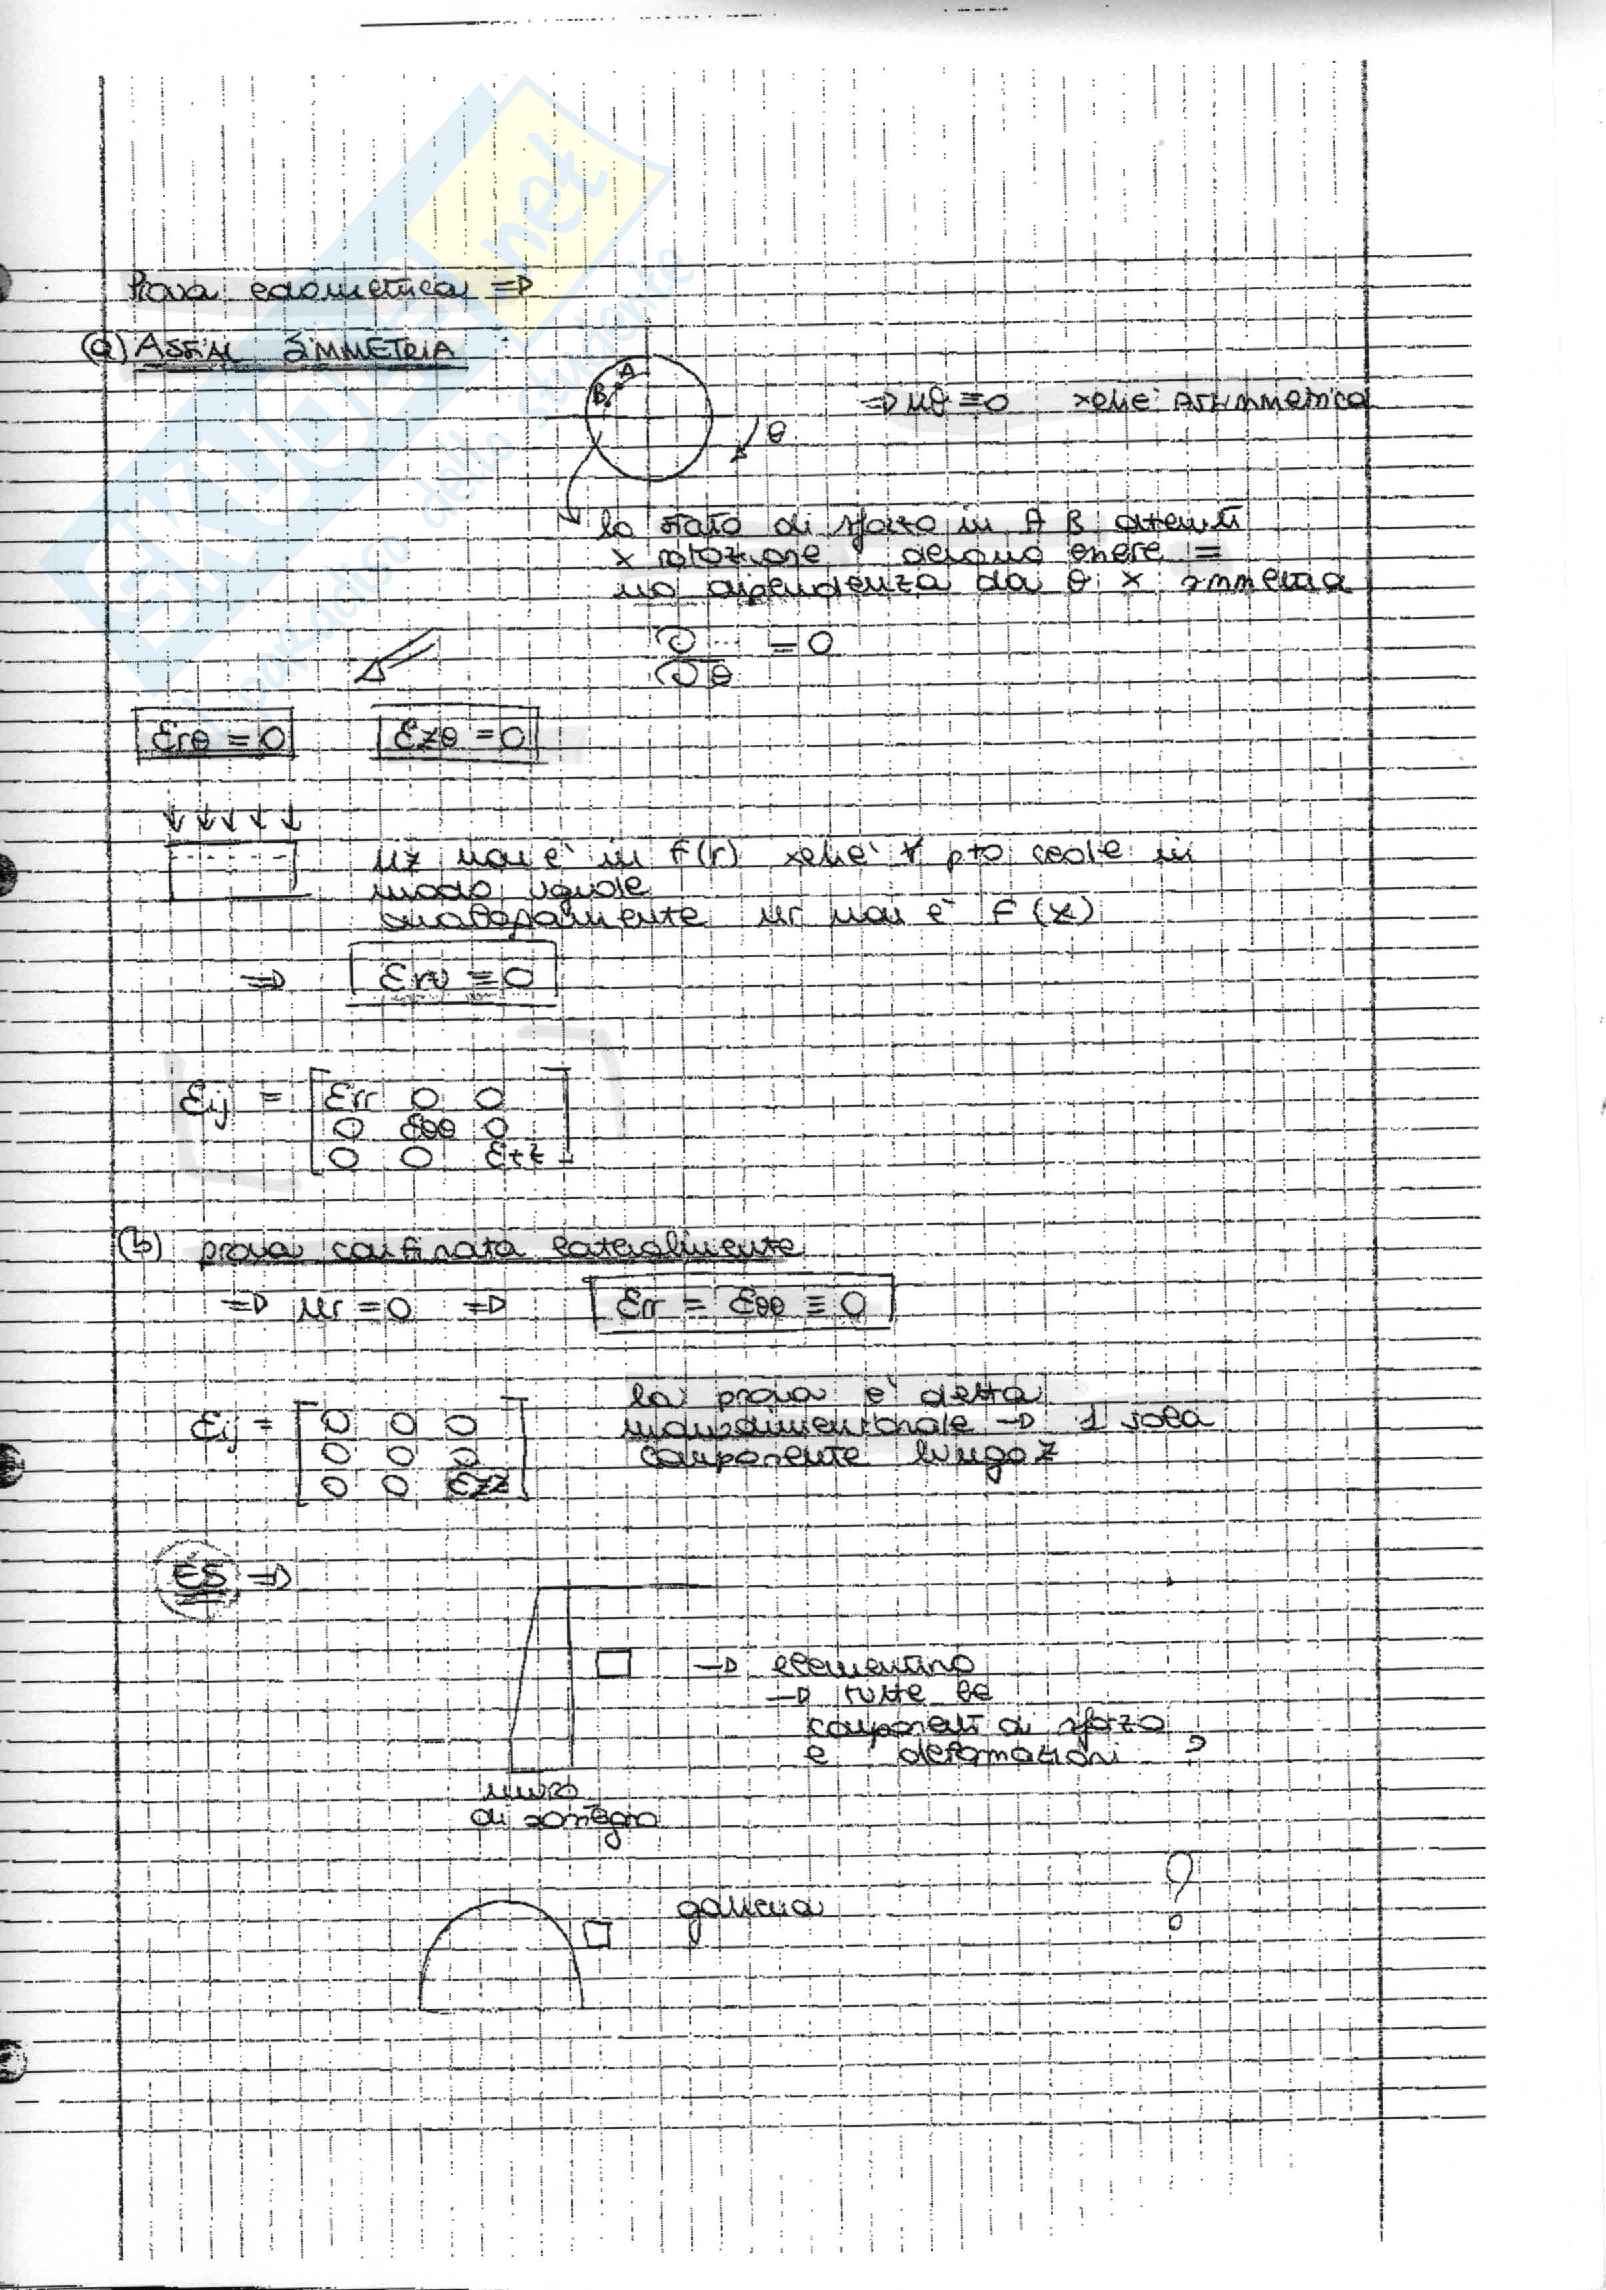 Prova edometrica ⇒
(a) ASSIAL SIMMETRIA
A
B
θ
⇒ uθ ≡ 0 xché assimmetrica
lo stato di sforzo in A B ottenuti
x rotazione devono essere =
no dipendenza da θ x simmetria
∂... / ∂θ = 0
εrθ = 0 εzθ = 0
uz non è in F(r) xché ∀ pto cede in
modo uguale
analogamente ur non è F(z)
⇒ εrv ≡ 0
εij = [ εrr 0 0
0 εθθ 0
0 0 εzz ]
(b) prova confinata lateralmente
⇒ ur = 0 ⇒ εrr = εθθ ≡ 0
εij = [ 0 0 0
0 0 0
0 0 εzz ]
la prova è detta
monodimensionale → 1 sola
componente lungo z
ES ⇒
→ elementino
→ tutte le
componenti di sforzo
e deformazioni ?
muro
di sostegno
galleria
?
SKUOLA.net
il paradiso dello studente